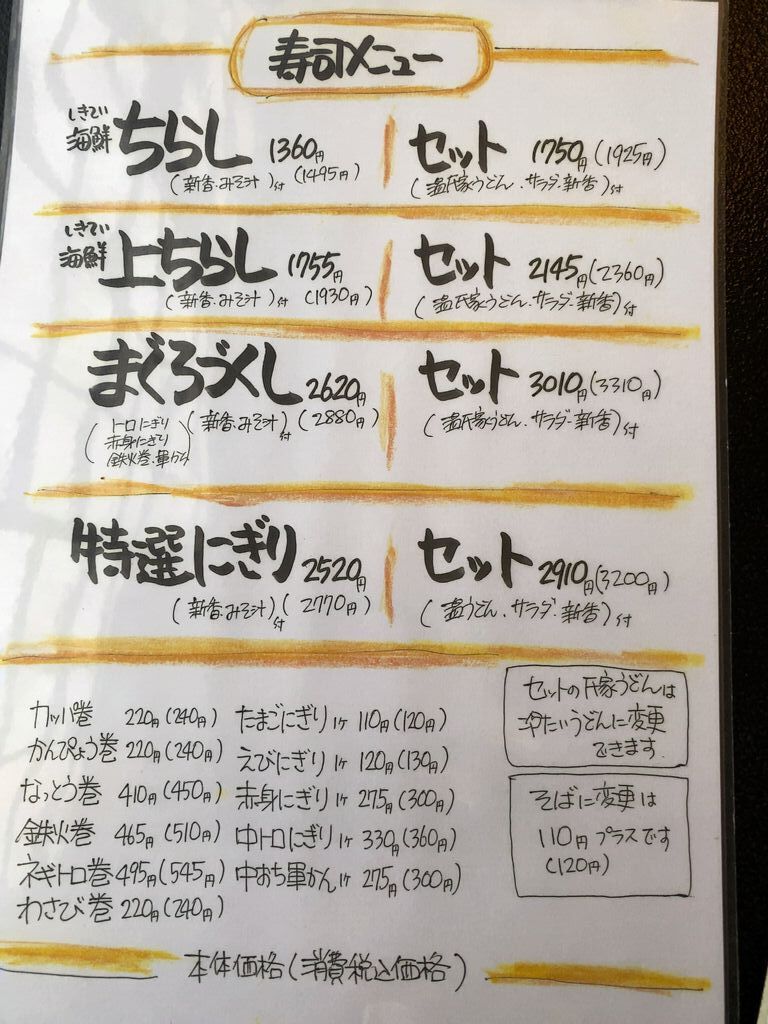 寿司メニュー
しきてい
海鮮 ちらし 1360円 セット 1750円(1925円)
(新香・みそ汁)付 (1495円) (温氏家うどん・サラダ・新香)付
しきてい
海鮮 上ちらし 1755円 セット 2145円(2360円)
(新香・みそ汁)付 (1930円) (温氏家うどん・サラダ・新香)付
まぐろづくし 2620円 セット 3010円(3310円)
(トロにぎり (新香・みそ汁)付 (2880円) (温氏家うどん・サラダ・新香)付
赤身にぎり
鉄火巻・軍かん)
特選にぎり 2520円 セット 2910円(3200円)
(新香・みそ汁)付 (2770円) (温うどん・サラダ・新香)付
カッパ巻 220円(240円) たまごにぎり1ケ 110円(120円)
かんぴょう巻 220円(240円) えびにぎり1ケ 120円(130円)
なっとう巻 410円(450円) 赤身にぎり1ケ 275円(300円)
鉄火巻 465円(510円) 中トロにぎり1ケ 330円(360円)
ネギトロ巻 495円(545円) 中おち軍かん1ケ 275円(300円)
わさび巻 220円(240円)
セットの氏家うどんは
冷たいうどんに変更
できます。
そばに変更は
110円プラスです
(120円)
本体価格(消費税込価格)